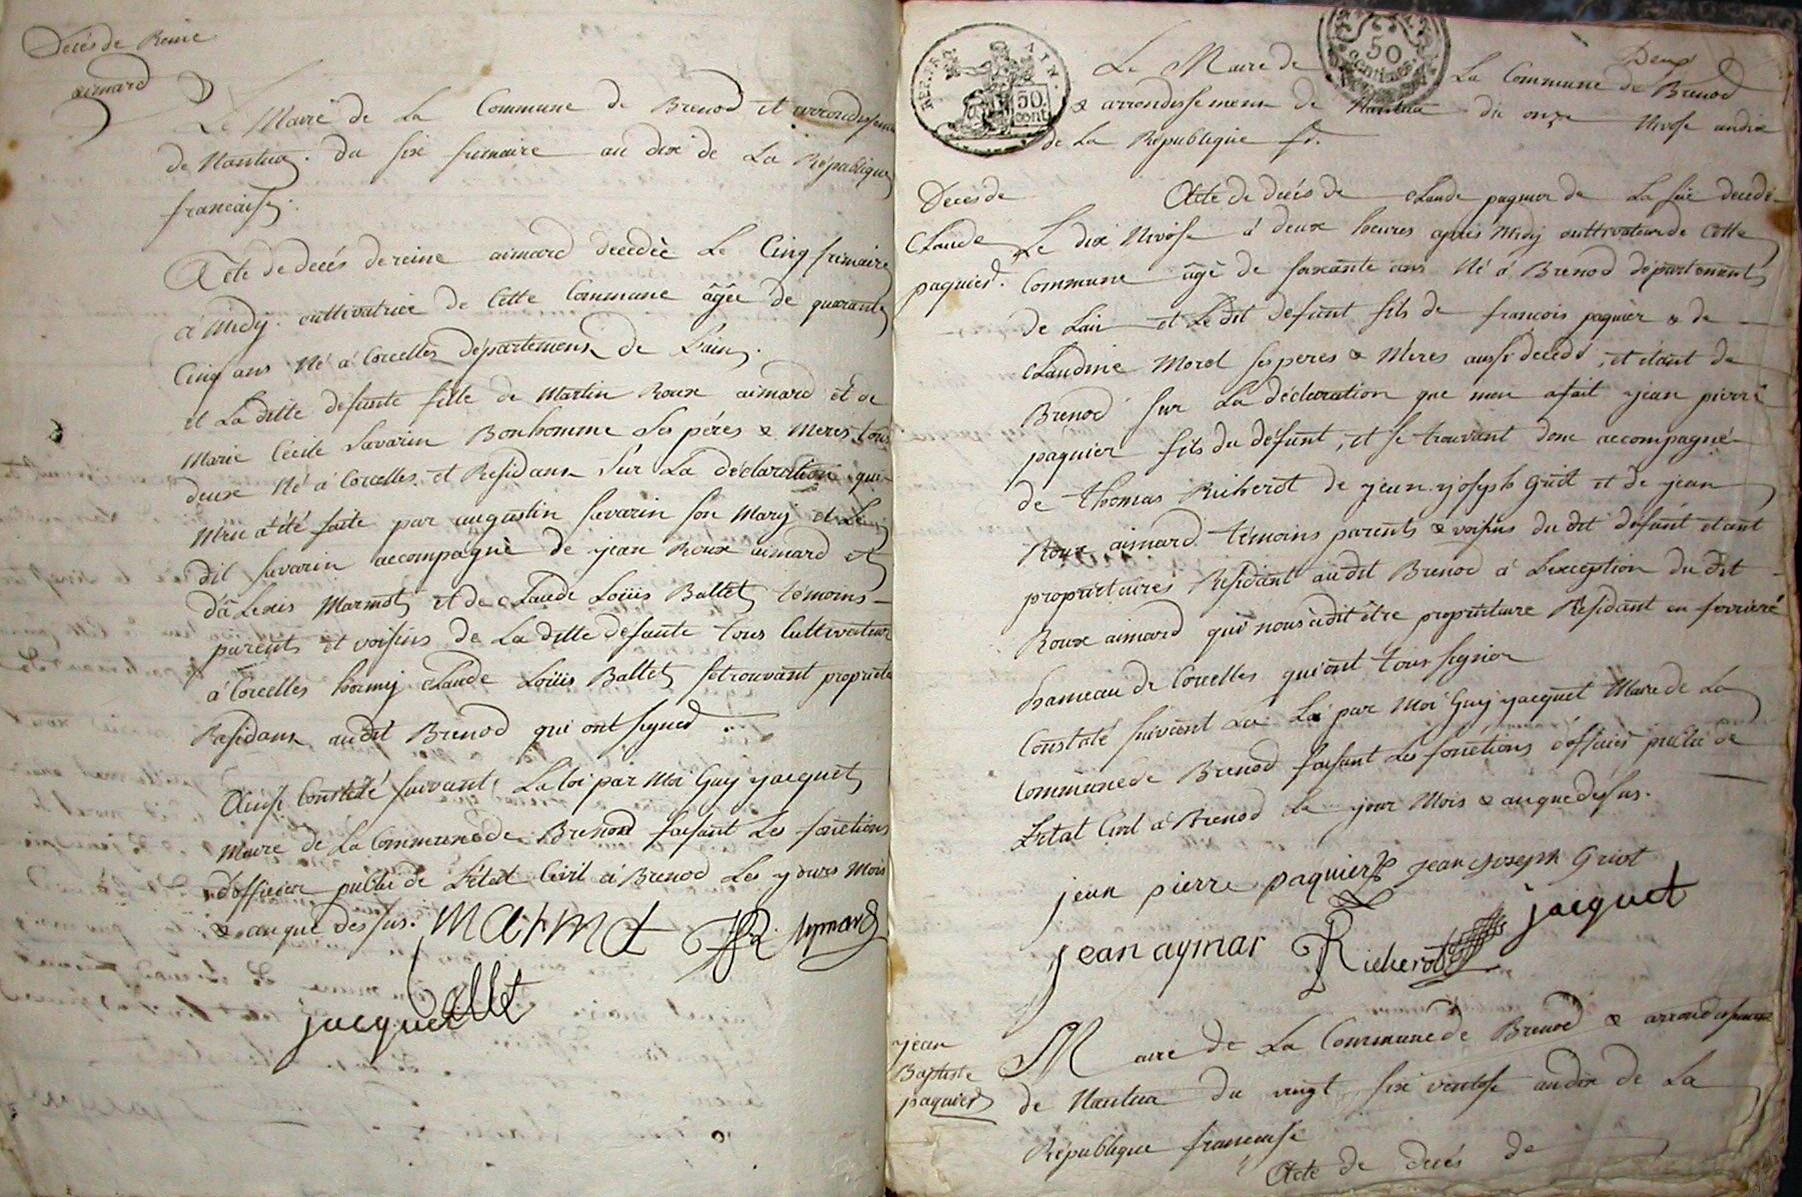 Décès de Reine
aimard
Le Maire de La Commune de Brenod et arrondissem
de Nantua. du six frimaire an dix de La République
francaise.
Acte de decés de reine aimard decedèe Le Cinq frimaire
à Midy. cultivatrice de Cette Commune âgée de quarante
Cinq ans Né à Corcelles département de L'ain.
et La ditte defunte fille de Martin Roux aimard et de
Marie Cecile Savarin Bonhomme Ses pérès & Meres tous
deux Né à Corcelles. et Residans Sur La déclaration qui
M'en a été faite par augustin Savarin son Mary et Le
dit Savarin accompagné de jean Roux aimard et
d'aLexis Marmet et de Claude Loüis Ballet témoins
parents et voisins de La ditte défunte tous Cultivateur
à Corcelles hormy Claude Loüis Ballet se trouvant propriéte
Residans audit Brenod qui ont signed
Ainsi Constaté suivant La loi par Moi Guy jacquet
Maire de La Commune de Brenod faisant Les fonctions
d'officier public de L'état Civil à Brenod Les jours Mois
& an que dessus. Marmet JR Aymard
Ballet
jacquet
BENREG. AYN.
50 cent
50 centimes
Deux
Le Maire de La Commune de Brenod
& arrondissement de Nantua du onze Nivose an dix
de La République fr.
Decès de
Claude
paquier.
Acte de decés de Claude paquier de La fie decedé
Le dix Nivose à deux heures après Midy cultivateur de Cette
Commune âgé de soixante ans Né à Brenod département
de Lain et Le dit defunt fils de francois paquier & de
Claudine Morel ses peres & Meres aussi decedé, et étant de
Brenod sur La déclaration que men a fait jean pierre
paquier fils du défunt, et se trouvant donc accompagné
de thomas Richerot de jean joseph Griot et de jean
Roux aimard témoins parents & voisins du dit défunt etant
propriétaires Résidant audit Brenod à L'exception du dit
Roux aimard qui nous a dit être propriétaire Résidant en ferriere
hameau de Corcelles qui ont tous signer
Constaté suivant La Loi par Moi Guy jacquet Maire de La
Commune de Brenod faisant Les fonctions d'officier public de
L'etat Civil à Brenod Le jour Mois & an que dessus.
jean pierre paquier jean joseph Griot
jean aymar Richerot jacquet
jean
Baptiste
paquier
Maire de La Commune de Brenod & arrondissement
de Nantua du vingt six ventose an dix de La
République francaise
Acte de decés de